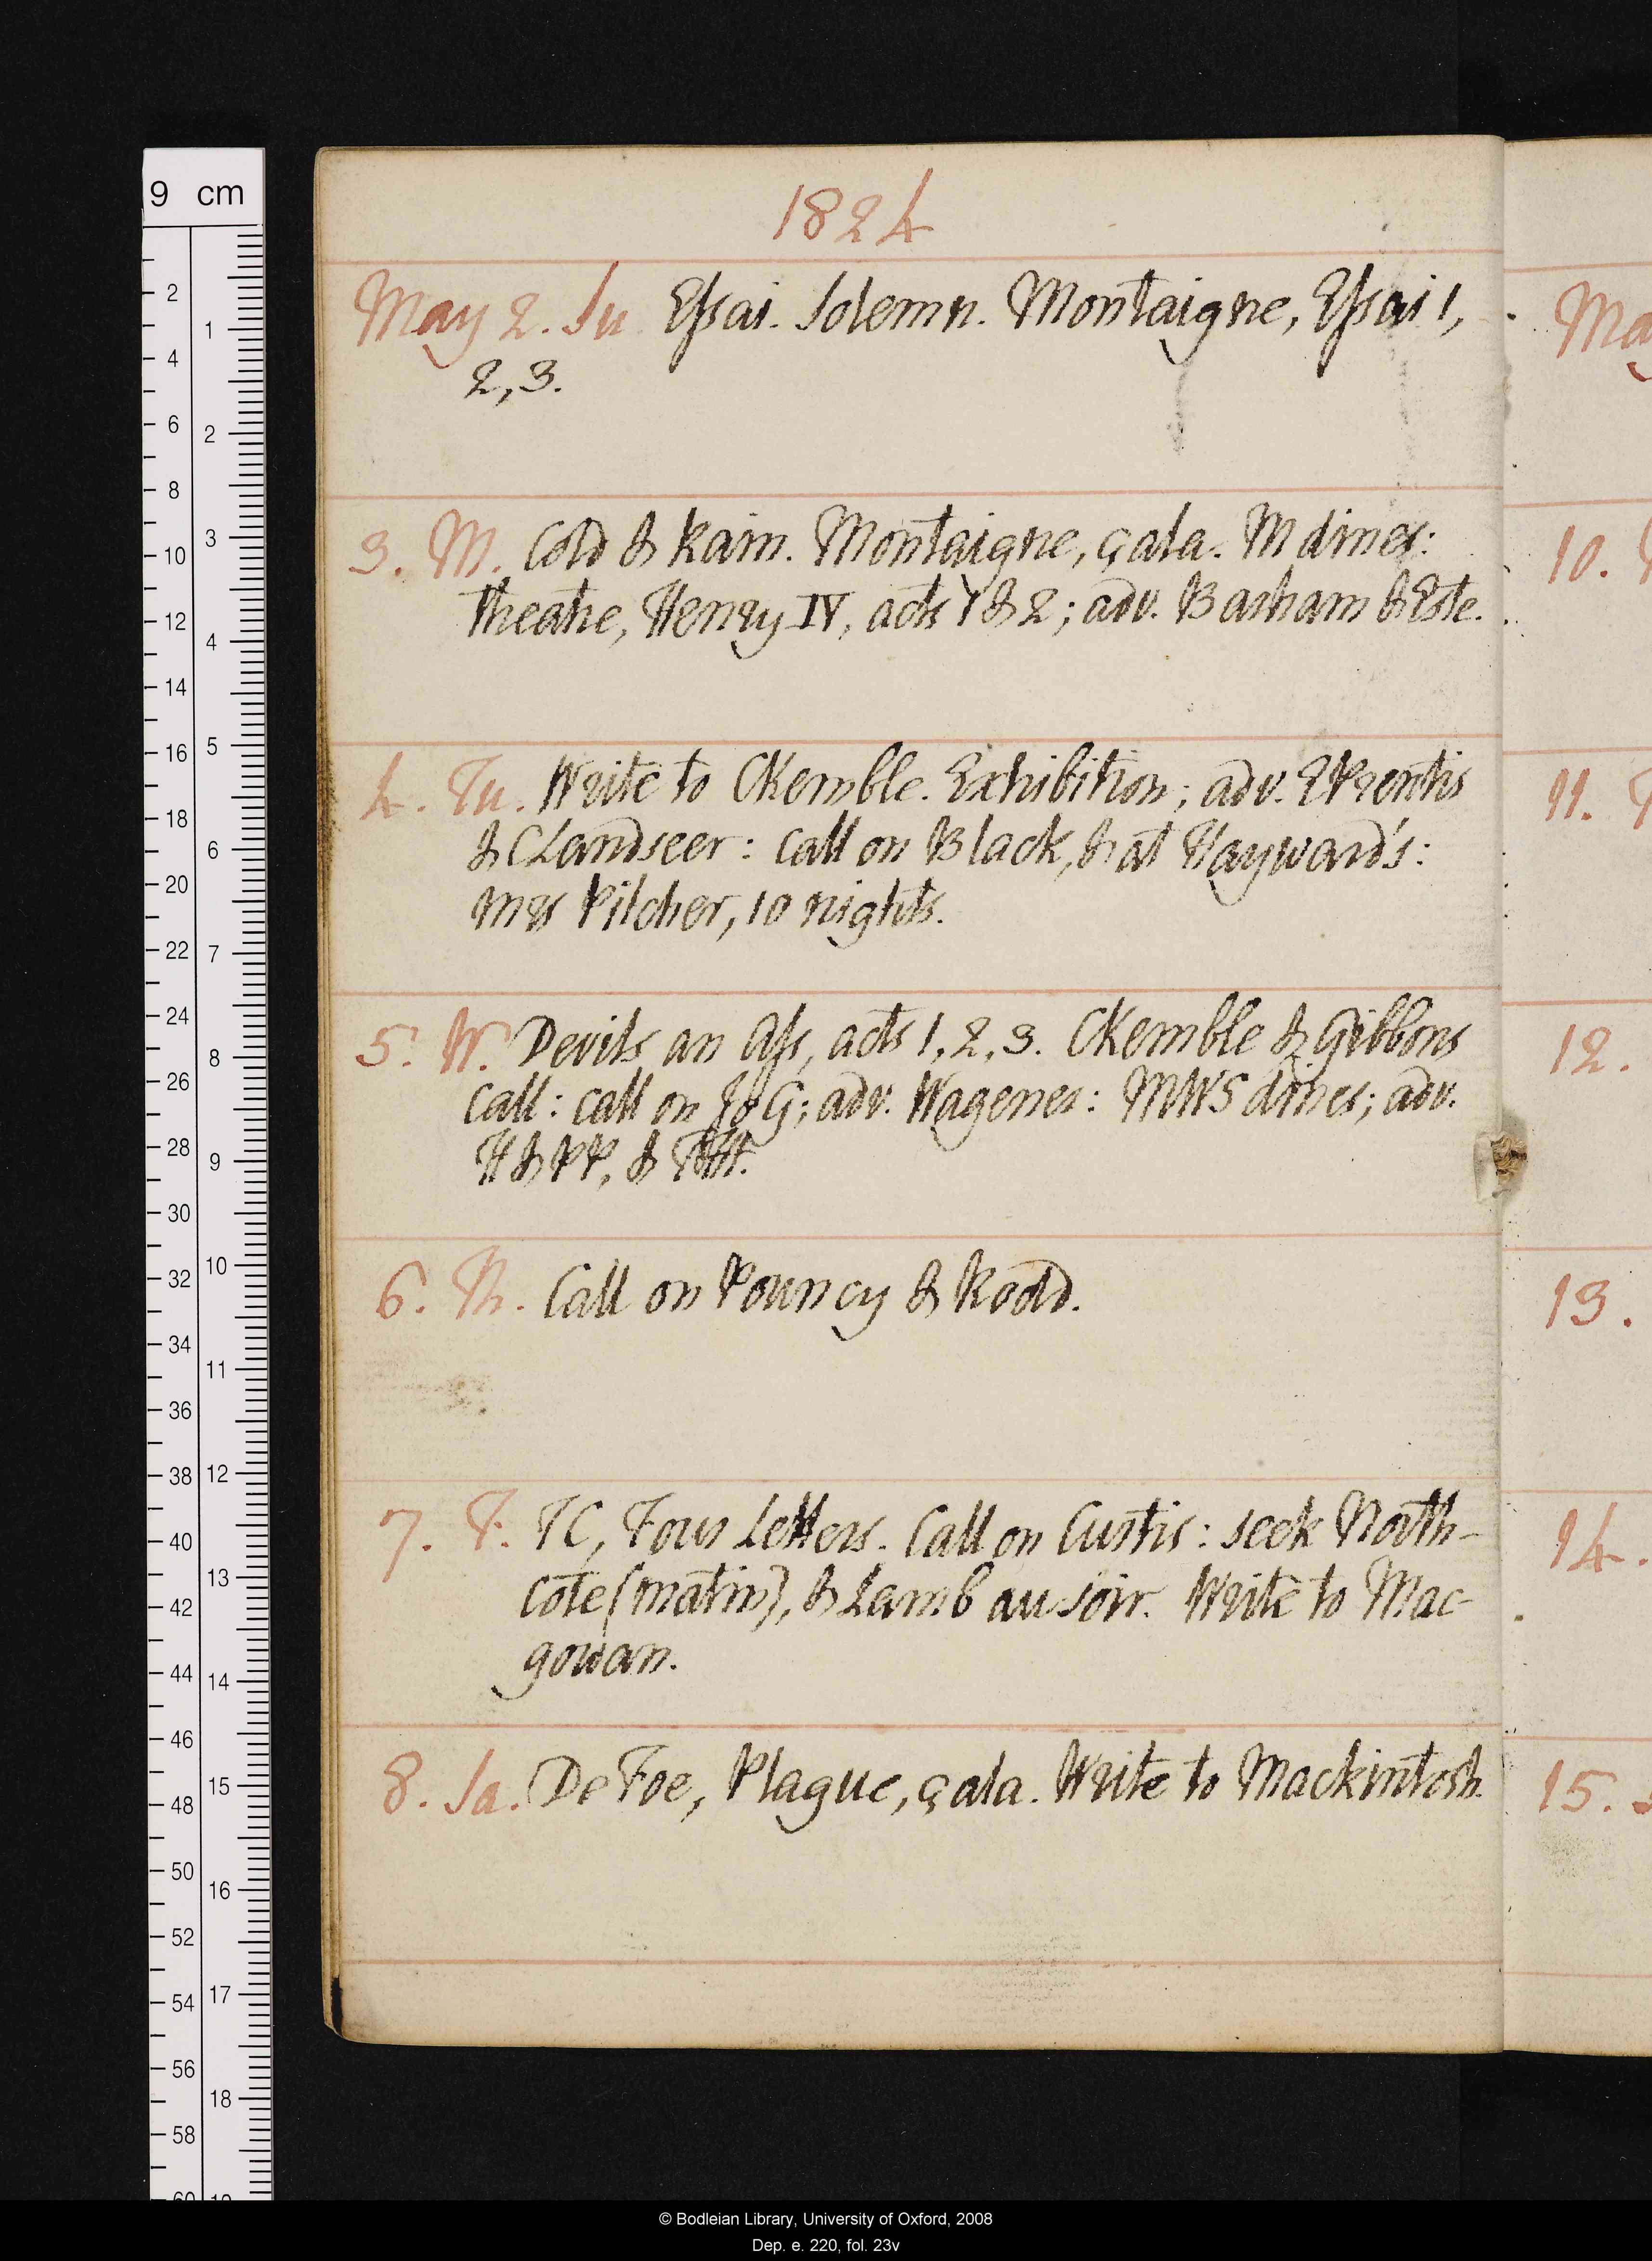 9 cm
1824
May 2. Su Essai. Solemn. Montaigne, Essai 1,
2, 3.
3. M. Cold & Rain. Montaigne, çala. M dines:
theatre, Henry IV, acts 1 & 2; adv. Barham & Este.
4. Tu. Write to CKemble. Exhibition; adv. EPrentis
& CLandseer: call on Black, & at Hayward's:
Mrs Pilcher, 10 nights.
5. W. Devil is an Ass, acts 1, 2, 3. CKemble & Gibbons
call: call on JoG; adv. Wageners: MWS dines; adv.
H & PP, &
6. Th. Call on Pouncy & Rodd.
7. F. TC, Four Letters. Call on Curtis: seek North-
cote (matin), & Lamb au soir. Write to Mac-
gowan.
8. Sa. De Foe, Plague, çala. Write to Mackintosh.
Ma
10.
11.
12.
13.
14.
15.
© Bodleian Library, University of Oxford, 2008
Dep. e. 220, fol. 23v